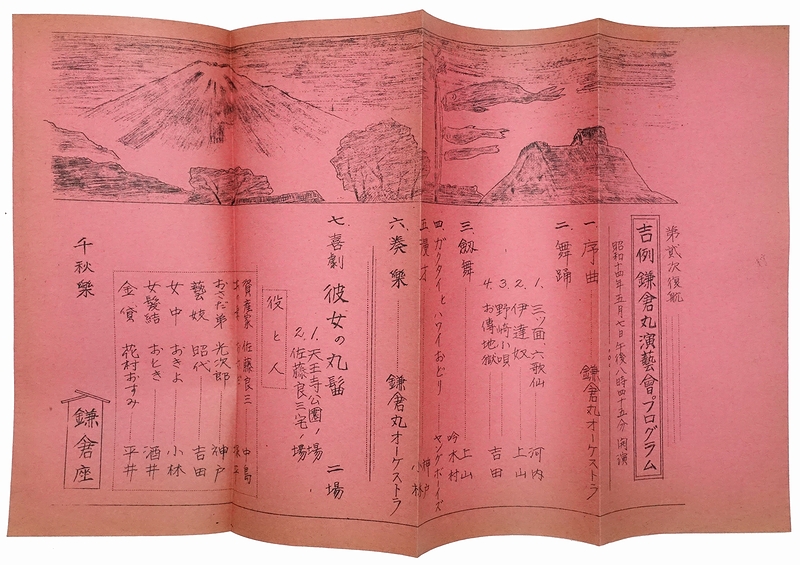 第貳次復航
吉例鎌倉丸演藝會プログラム
昭和十四年五月七日午後八時四十五分 開演
一 序曲 鎌倉丸オーケストラ
二 舞踊
1. 三ツ面、六歌仙 河内
2. 伊達奴 上山
3. 野崎小唄
4. お傳地獄 吉田
三 劔舞 上山
吟 木村
四 ガクタイとハワイおどり ヤングボーイズ
五 漫才 神戸
小林
六 奏樂 鎌倉丸オーケストラ
七 喜劇 彼女の丸髷 二場
1. 天王寺公園ノ場
2. 佐藤良三宅ノ場
役と人
資産家 佐藤良三 中島
おさだ弟 光次郎 神戸
藝妓 昭代 吉田
女中 おきよ 小林
女髪結 おとき 酒井
金貸 花村おすみ 平井
千秋樂
鎌倉座